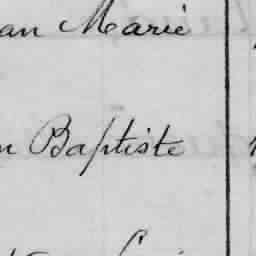 an Marie
n Baptiste